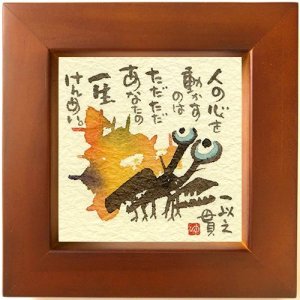 人の心を
動かす
のは
ただただ
あなたの
一生
けんめい。
一以之
貫